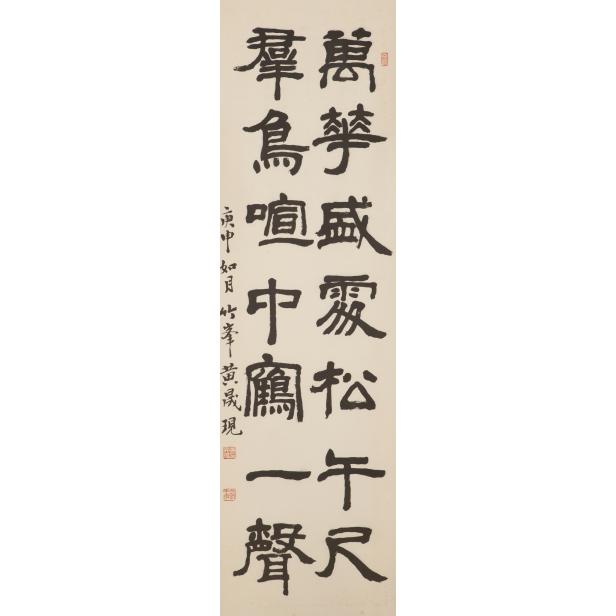 萬華盛處松千尺
羣鳥喧中鶴一聲
庚申如月竹峯黃晟現